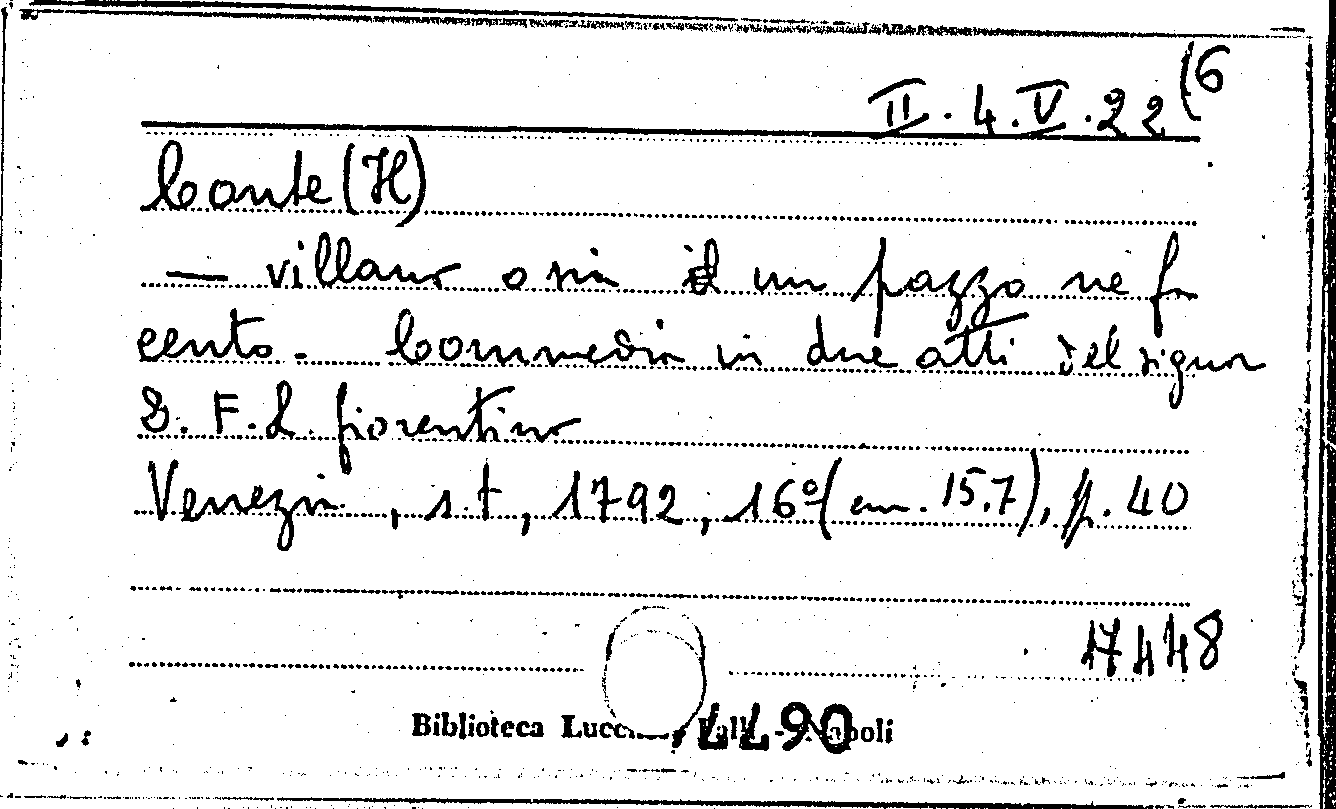 II.4.V.22(6
Conte (Il)
— villano o sia un pazzo ne fa
cento. Commedia in due atti del signor
G. F. L. fiorentino
Venezia, s.t, 1792, 16º (cm. 15.7), p. 40
17448
Biblioteca Lucc Palli - Napoli